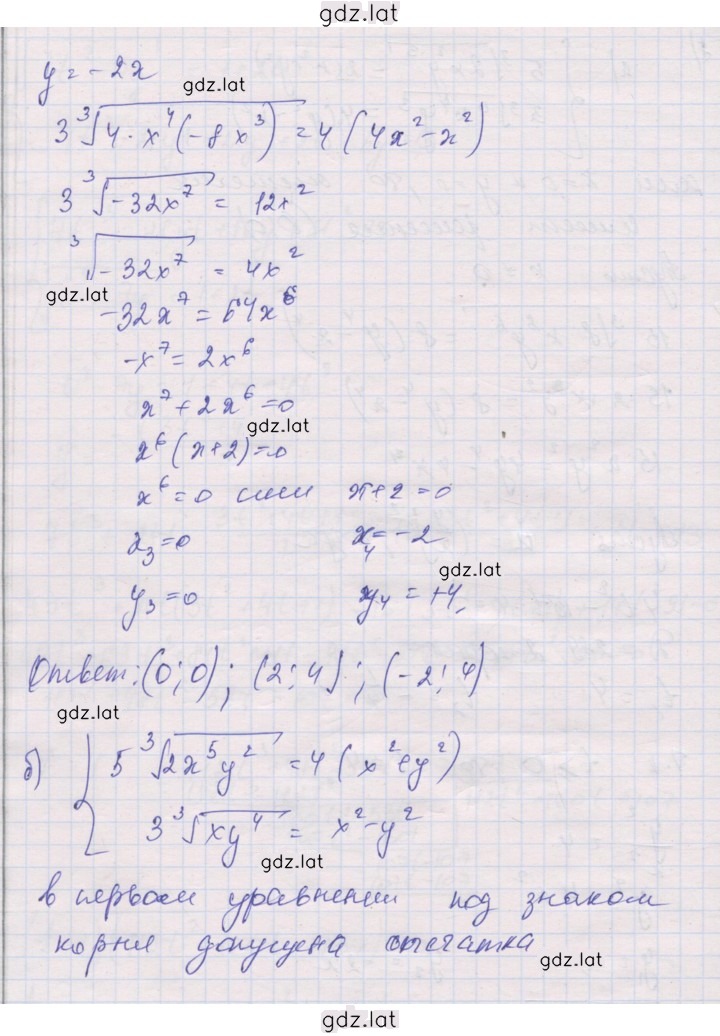 gdz.lat
y = -2x
gdz.lat
3∛(4·x⁴(-8x³)) = 4(4x²-x²)
3∛(-32x⁷) = 12x²
∛(-32x⁷) = 4x²
gdz.lat
-32x⁷ = 64x⁶
-x⁷ = 2x⁶
x⁷ + 2x⁶ = 0
gdz.lat
x⁶(x+2) = 0
x⁶ = 0 или x+2 = 0
x₃ = 0 x₄ = -2
gdz.lat
y₃ = 0 y₄ = +4,
Ответ: (0; 0); (2; 4); (-2; 4)
gdz.lat
б) { 5∛(2x⁵y²) = 4(x²+y²)
3∛(xy⁴) = x²-y²
gdz.lat
в первом уравнении под знаком
корня допущена опечатка
gdz.lat
gdz.lat